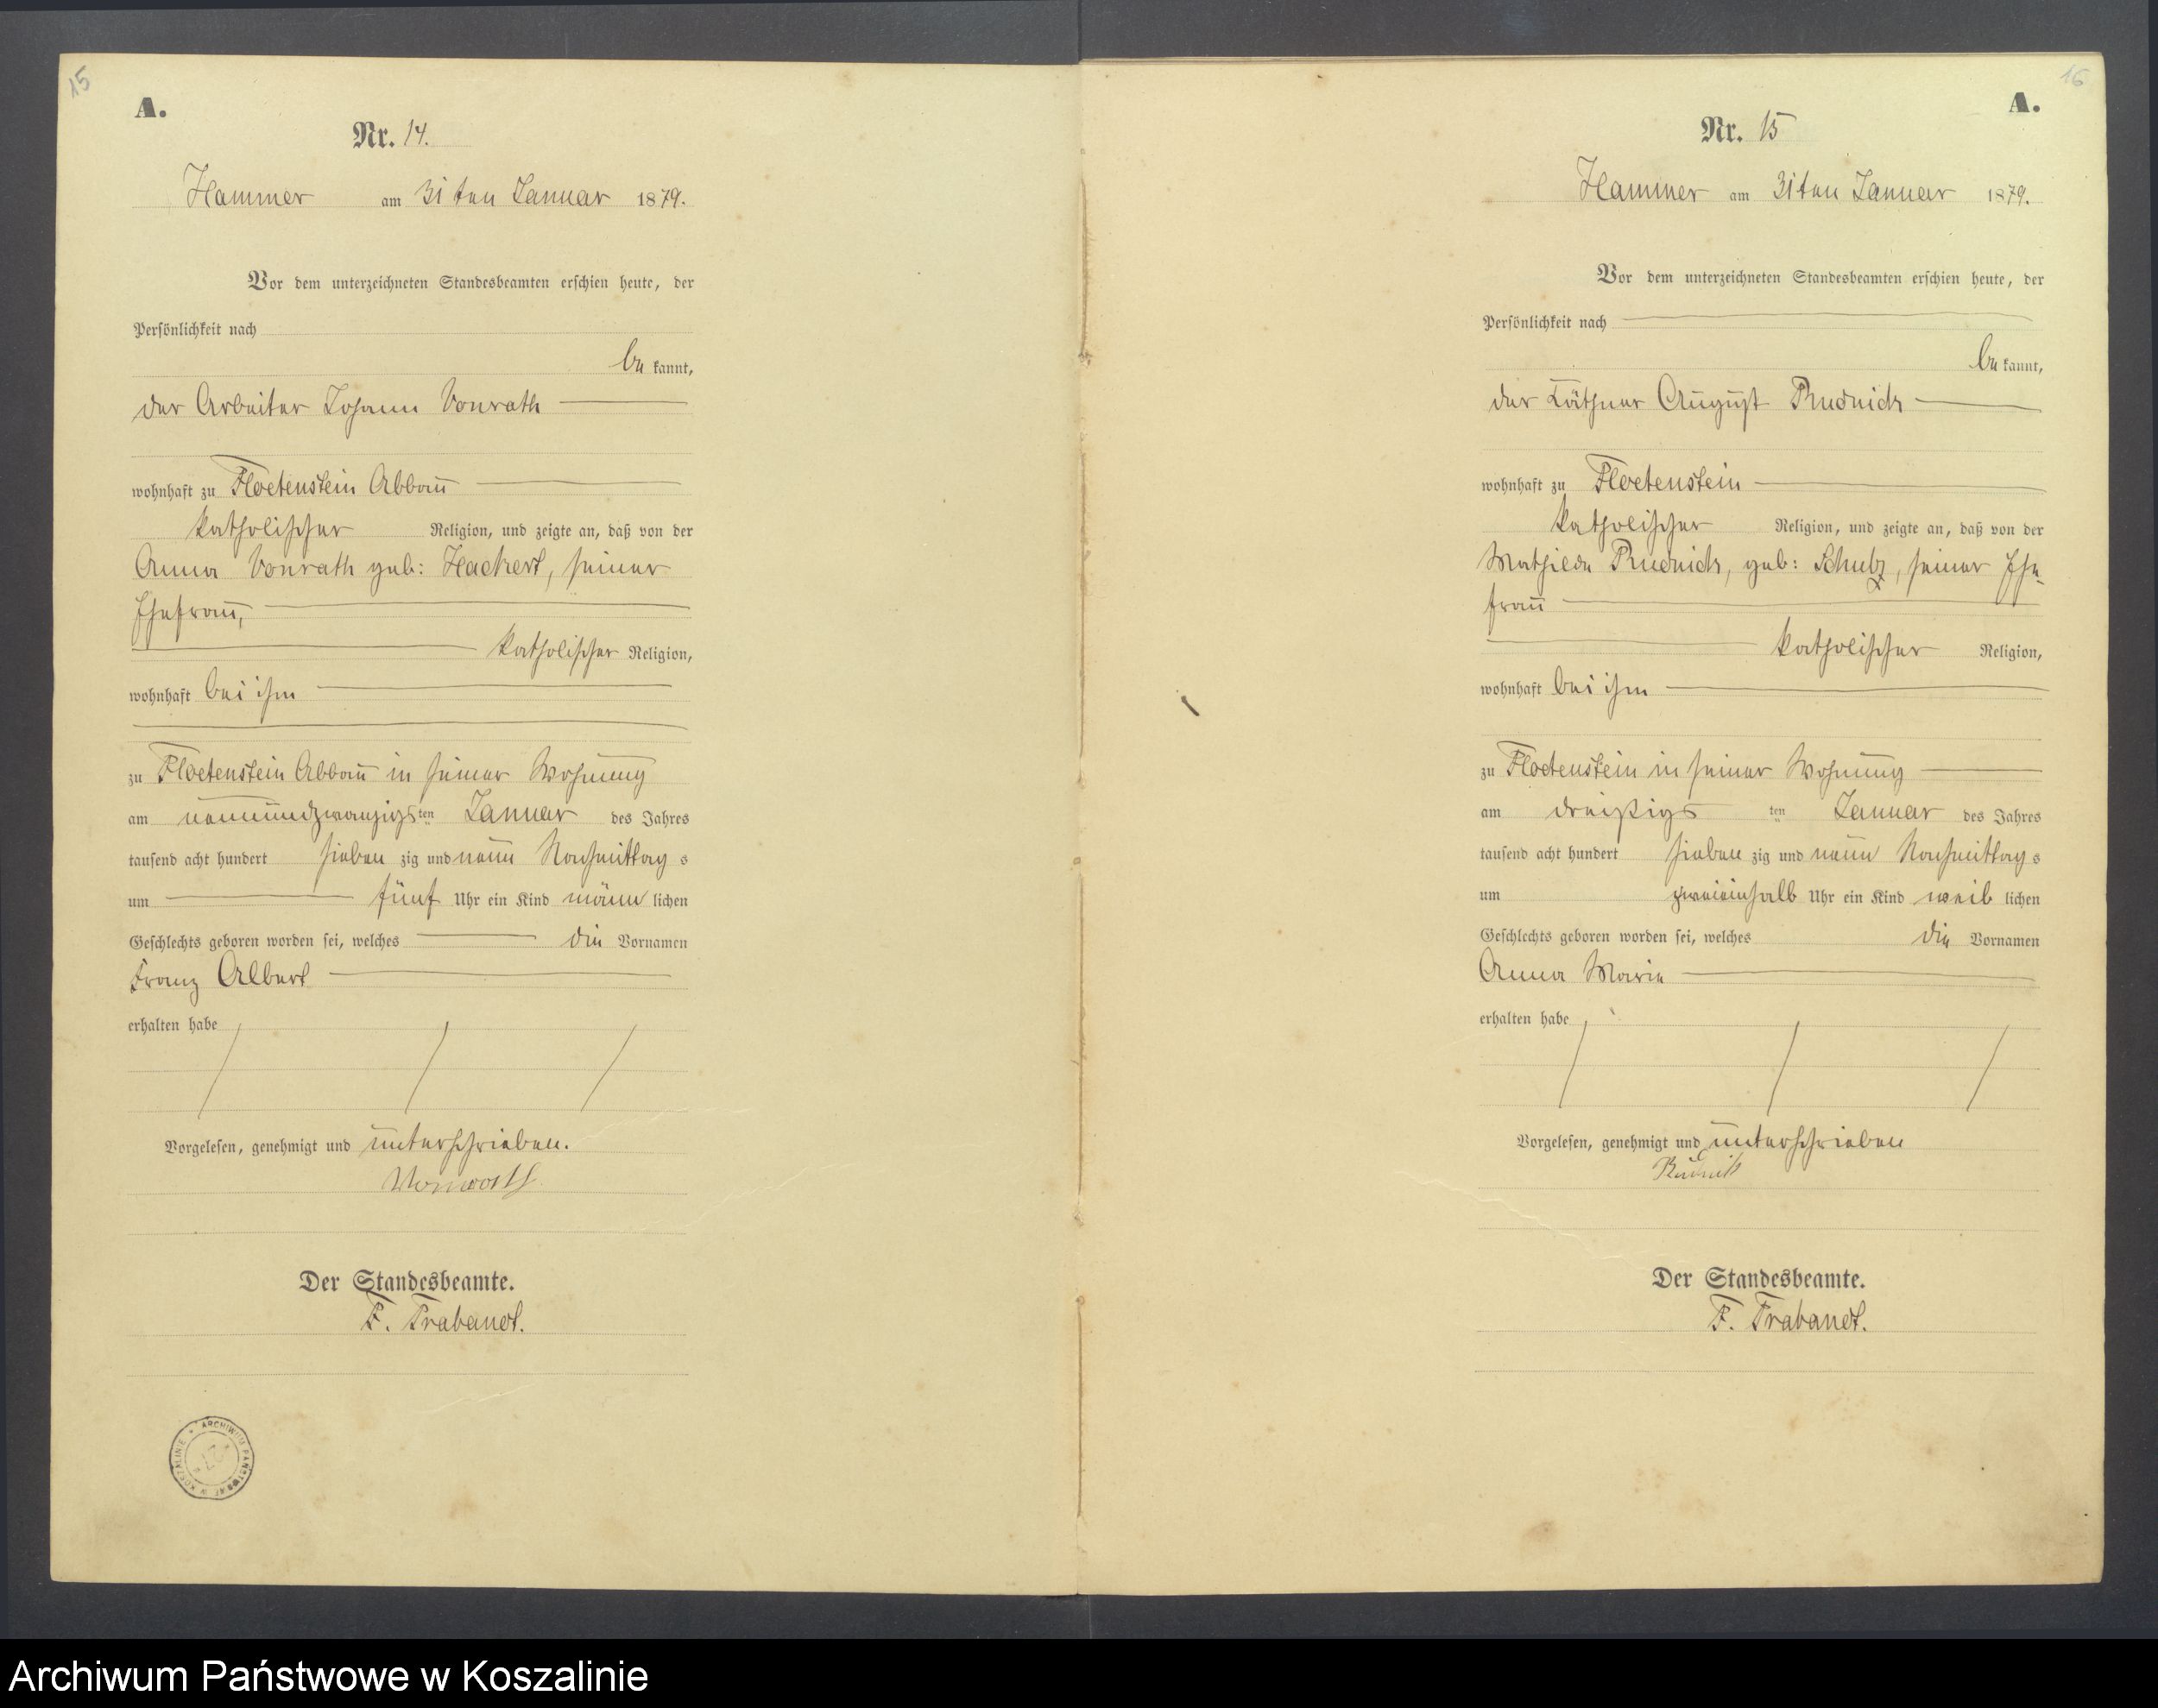 15
A.
Nr. 14.
Hammer am 31ten Januar 1879.
Vor dem unterzeichneten Standesbeamten erschien heute, der
Persönlichkeit nach
be kannt,
der Arbeiter Johann Vonrath
wohnhaft zu Floetenstein Abbau
katholischer Religion, und zeigte an, daß von der
Anna Vonrath geb: Hackert, seiner
Ehefrau,
katholischer Religion,
wohnhaft bei ihm
zu Floetenstein Abbau in seiner Wohnung
am neunundzwanzigs ten Januar des Jahres
tausend acht hundert sieben zig und neun Nachmittag s
um fünf Uhr ein Kind männ lichen
Geschlechts geboren worden sei, welches die Vornamen
Franz Albert
erhalten habe
Vorgelesen, genehmigt und unterschrieben.
Vonrath
Der Standesbeamte.
F. Trabandt.
ARCHIWUM PAŃSTWOWE W KOSZALINIE
16
A.
Nr. 15
Hammer am 31ten Januar 1879.
Vor dem unterzeichneten Standesbeamten erschien heute, der
Persönlichkeit nach
be kannt,
der Käthner August Rudnick
wohnhaft zu Floetenstein
katholischer Religion, und zeigte an, daß von der
Mathilde Rudnick, geb: Schulz, seiner Ehe-
frau
katholischer Religion,
wohnhaft bei ihm
zu Floetenstein in seiner Wohnung
am dreißigs ten Januar des Jahres
tausend acht hundert sieben zig und neun Nachmittag s
um zweieinhalb Uhr ein Kind weib lichen
Geschlechts geboren worden sei, welches die Vornamen
Anna Marie
erhalten habe
Vorgelesen, genehmigt und unterschrieben
Rudnik
Der Standesbeamte.
F. Trabandt.
Archiwum Państwowe w Koszalinie